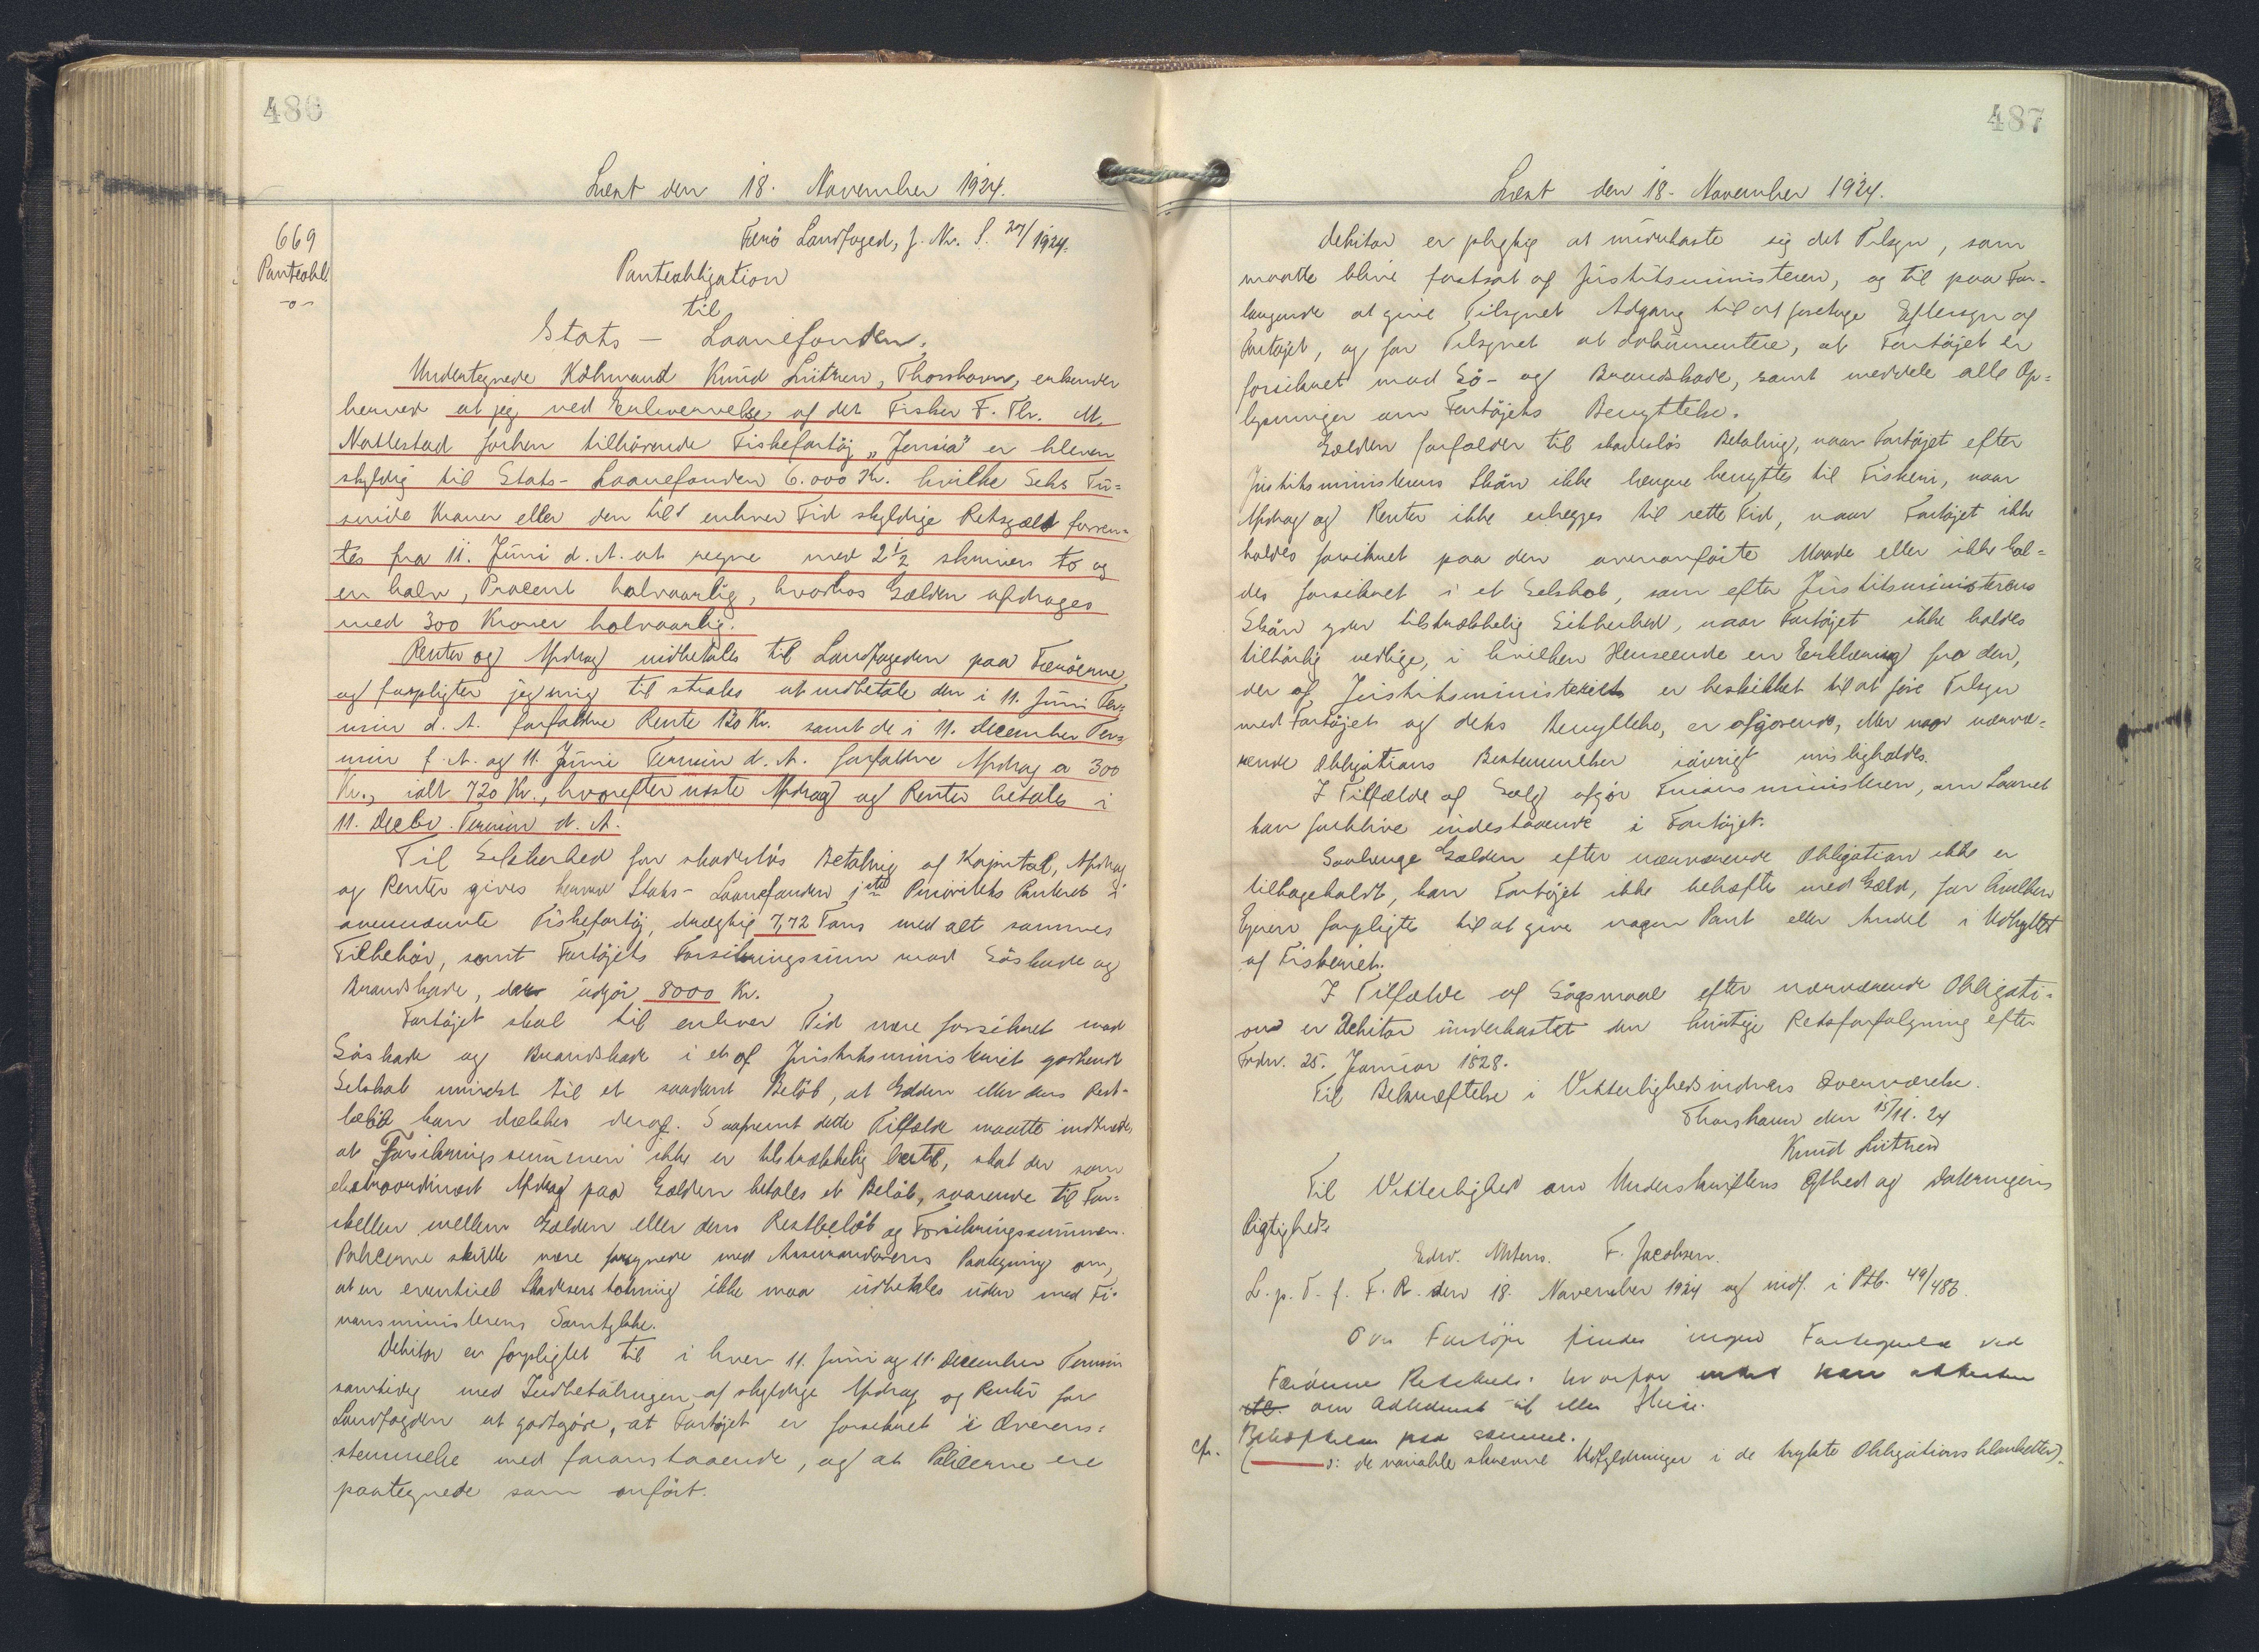 486
Læst den 18. November 1924.
669
Panteobl.
-o-
Færö Landfoged, J. Nr. S. 27/1924.
Panteobligation
til
Stats - Laanefonden.
Undertegnede Köbmand Knud Lützen, Thorshavn, erkender
herved at jeg ved Erhvervelse af det Fisker F. Chr. M.
Nattestad forhen tilhörende Fiskefartöj "Jensia" er bleven
skyldig til Stats-Laanefonden 6.000 Kr. hvilke Seks Tu=
sinde Kroner eller den til enhver Tid skyldige Restgæld forren-
tes fra 11. Juni d. A. at regne med 2½ skriver to og
en halv, Procent halvaarlig, hvorhos Gælden afdrages
med 300 Kroner halvaarlig.
Renter og Afdrag indbetales til Landfogeden paa Færöerne
og forpligter jeg mig til straks at indbetale den i 11. Juni Ter=
min d. A. forfaldne Rente 120 Kr. samt de i 11. December Ter=
min f. A. og 11. Juni Termin d. A. forfaldne Afdrag a 300
Kr., ialt 720 Kr., hvorefter næste Afdrag og Renter betales i
11. Decbr. Termin d. A.
Til Sikkerhed for skadeslös Betaling af Kapital, Afdrag
og Renter gives herved Stats-Laanefonden 1ste Prioritets Panteret i
ovennævnte Fiskefartöj, drægtig 7,72 Tons med alt sammes
Tilbehör, samt Fartöjets Forsikringssum mod Söskade og
Brandskade, der udgör 8000 Kr.
Fartöjet skal til enhver Tid være forsikret mod
Söskade og Brandskade i et af Justitsministeriet godkendt
Selskab mindst til et saadant Belöb, at Gælden eller dens Rest-
belöb kan dækkes deraf. Saafremt dette Tilfælde maatte indtræde,
at Forsikringssummen ikke er tilstrækkelig hertil, skal der som
ekstraordinært Afdrag paa Gælden betales et Belöb, svarende til For=
skellen mellem Gælden eller dens Restbelöb og Forsikringssummen.
Policerne skulle være forsynede med Assurandörens Paategning om,
at en eventuel Skadeserstatning ikke maa udbetales uden med Fi-
nansministerens Samtykke.
Debitor er forpligtet til i hver 11. Juni og 11. December Termin
samtidig med Indbetalingen af skyldige Afdrag og Renter for
Landfogden at godtgöre, at Fartöjet er forsikret i Overens=
stemmelse med foranstaaende, og at Policerne ere
paategnede som anfört.
487
Læst den 18. November 1924.
Debitor er pligtig at underkaste sig det Tilsyn, som
maatte blive fastsat af Justitsministeren, og til paa For-
langende at give Tilsynet Adgang til at foretage Eftersyn af
Fartöjet, og for Tilsynet at dokumentere, at Fartöjet er
forsikret mod Sö- og Brandskade, samt meddele alle Op=
lysninger om Fartöjets Benyttelse.
Gælden forfalder til skadeslös Betaling, naar Fartöjet efter
Justitsministerens Skön ikke længere benyttes til Fiskeri, naar
Afdrag og Renter ikke erlægges til rette Tid, naar Fartöjet ikke
holdes forsikret paa den ovenanförte Maade eller ikke hol=
des forsikret i et Selskab, som efter Justitsministerens
Skön yder tilstrækkelig Sikkerhed, naar Fartöjet ikke holdes
tilbörlig vedlige, i hvilken Henseende en Erklæring fra den,
der af Justitsministeriet er beskikket til at före Tilsyn
med Fartöjet og dets Benyttelse, er afgörende, eller naar nærvæ=
rende Obligations Bestemmelser iövrigt misligholdes.
I Tilfælde af Salg afgör Finansministeren, om Laanet
kan forblive indestaaende i Fartöjet.
Saalænge Gælden efter nærværende Obligation ikke er
tilbagebetalt, kan Fartöjet ikke behæftes med Gæld, for hvilken
Ejeren forpligtes til at give nogen Pant eller Andel i Udbyttet
af Fiskeriet.
I Tilfælde af Sögsmaal efter nærværende Obligati=
on er Debitor underkastet den hurtige Retsforfölgning efter
Frdn. 25. Januar 1828.
Til Bekræftelse i Vitterlighedsvidners Overværelse.
Thorshavn den 15/11. 24
Knud Lützen
Til Vitterlighed om Underskriftens Ægthed og Dateringens
Rigtighed.
Edw. Mortens. F. Jacobsen.
L. p. T. f. F. R. den 18. November 1924 og indf. i Ptb. 49/486.
Over Fartöjer findes ingen Fortegnelse ved
Færöernes Retskreds, hvorfor intet kan attesteres
om Adkomst til eller Hæftelser paa samme.
cfr. ( ɔ: de variable skrevne Udfyldninger i de trykte Obligationsblanketter).